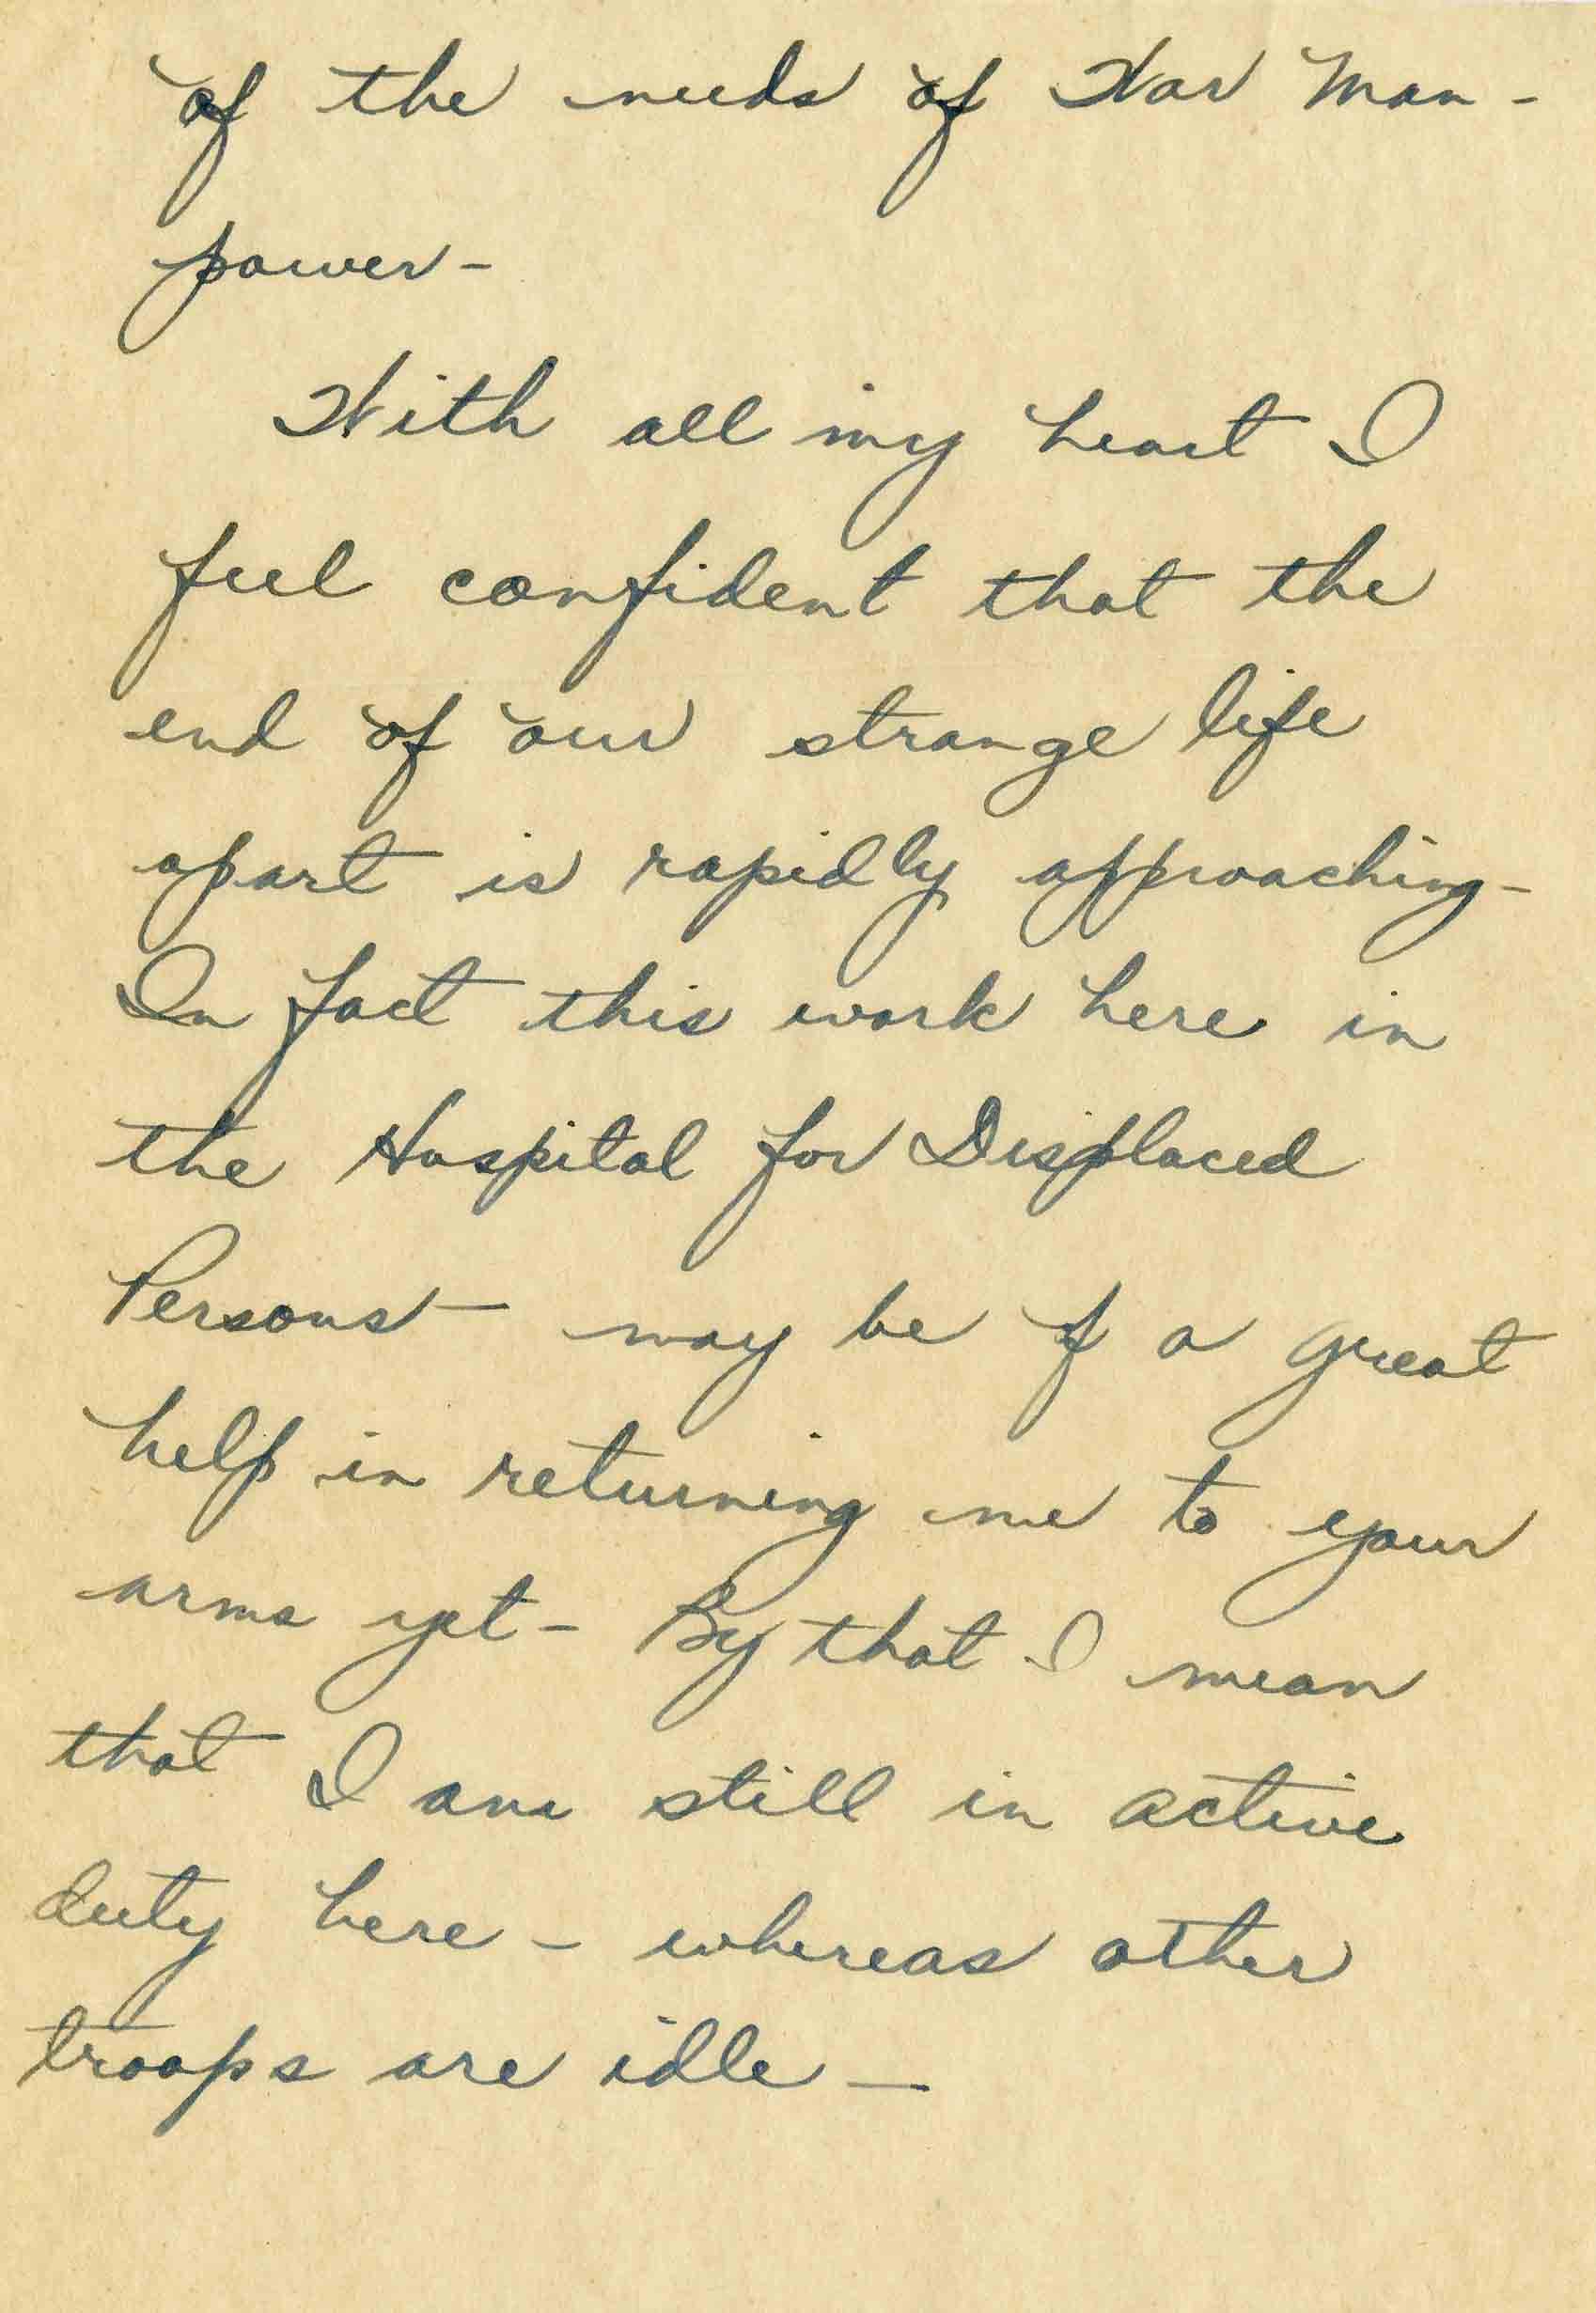 of the needs of War Man-
power-
With all my heart I
feel confident that the
end of our strange life
apart is rapidly approaching-
In fact this work here in
the Hospital for Displaced
Persons - may be of a great
help in returning me to your
arms yet - By that I mean
that I am still in active
duty here - whereas other
troops are idle -